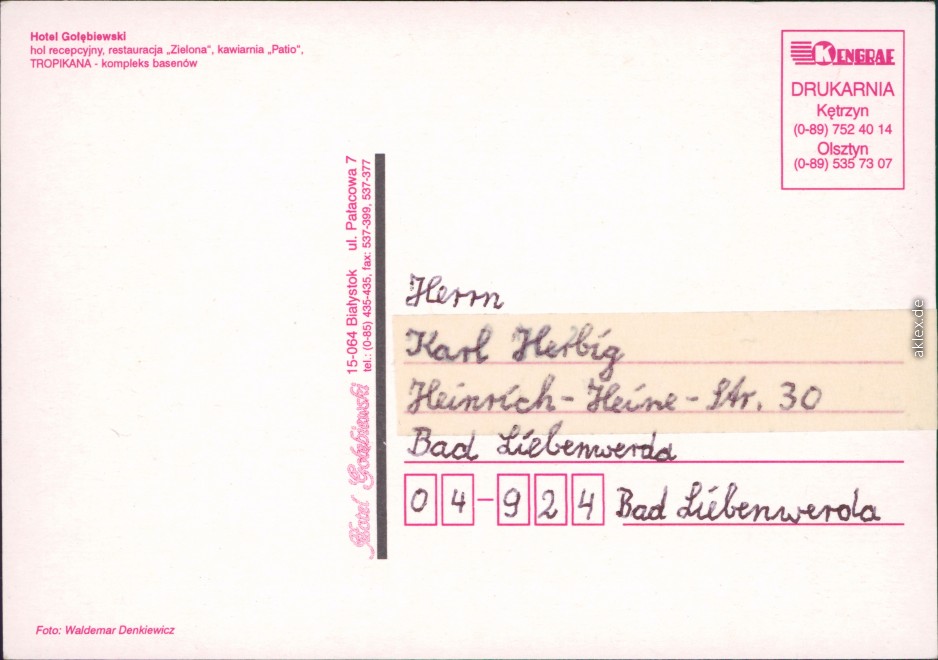 Hotel Gołębiewski
hol recepcyjny, restauracja „Zielona“, kawiarnia „Patio“,
TROPIKANA - kompleks basenów
KENGRAF
DRUKARNIA
Kętrzyn
(0-89) 752 40 14
Olsztyn
(0-89) 535 73 07
Hotel Gołębiewski
15-064 Białystok ul. Pałacowa 7
tel.: (0-85) 435-435, fax: 537-399, 537-377
Herrn
Karl Herbig
Heinrich-Heine-Str. 30
Bad Liebenwerda
04-924 Bad Liebenwerda
Foto: Waldemar Denkiewicz
aklex.de